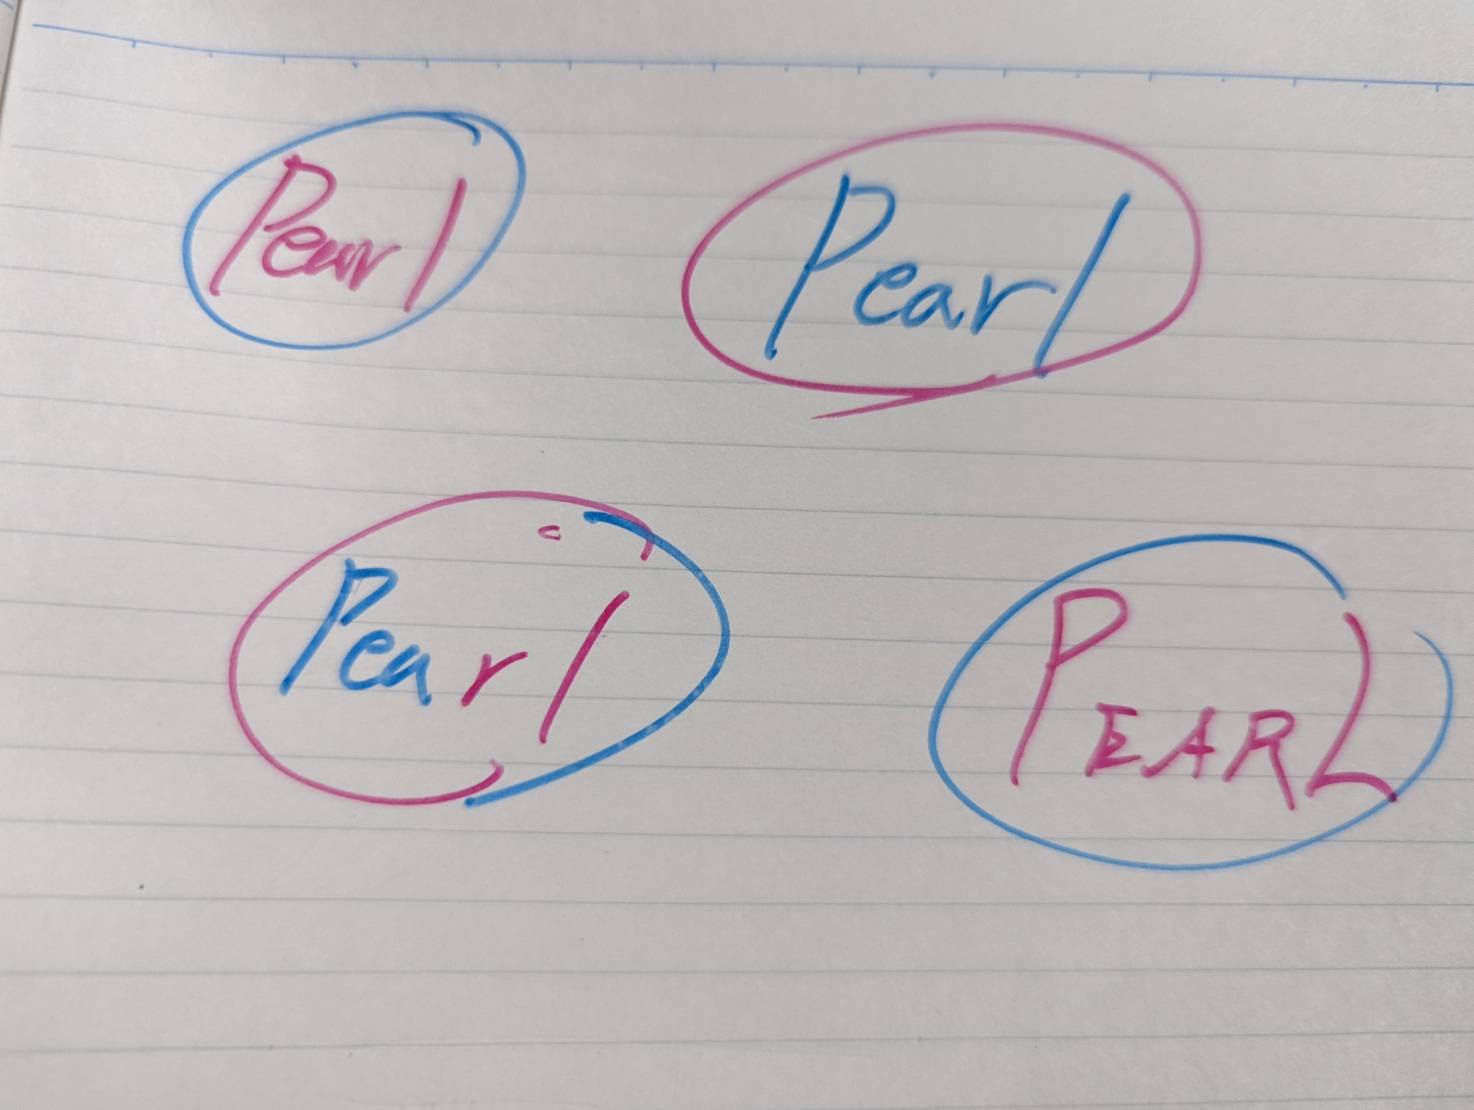 Pearl
Pearl
Pearl
PEARL